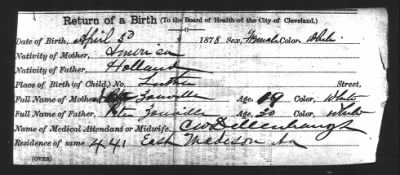 Return of a Birth (To the Board of Health of the City of Cleveland.)
Date of Birth, April 30 1878 Sex, Female Color, White
Nativity of Mother, America
Nativity of Father, Holland
Place of Birth (of Child,) No. Street,
Full Name of Mother, Age, 19 Color, White
Full Name of Father, Peter Age, 30 Color, White
Name of Medical Attendant or Midwife, C W Dellenbaugh
Residence of same 441 East Madison Av
(OVER)